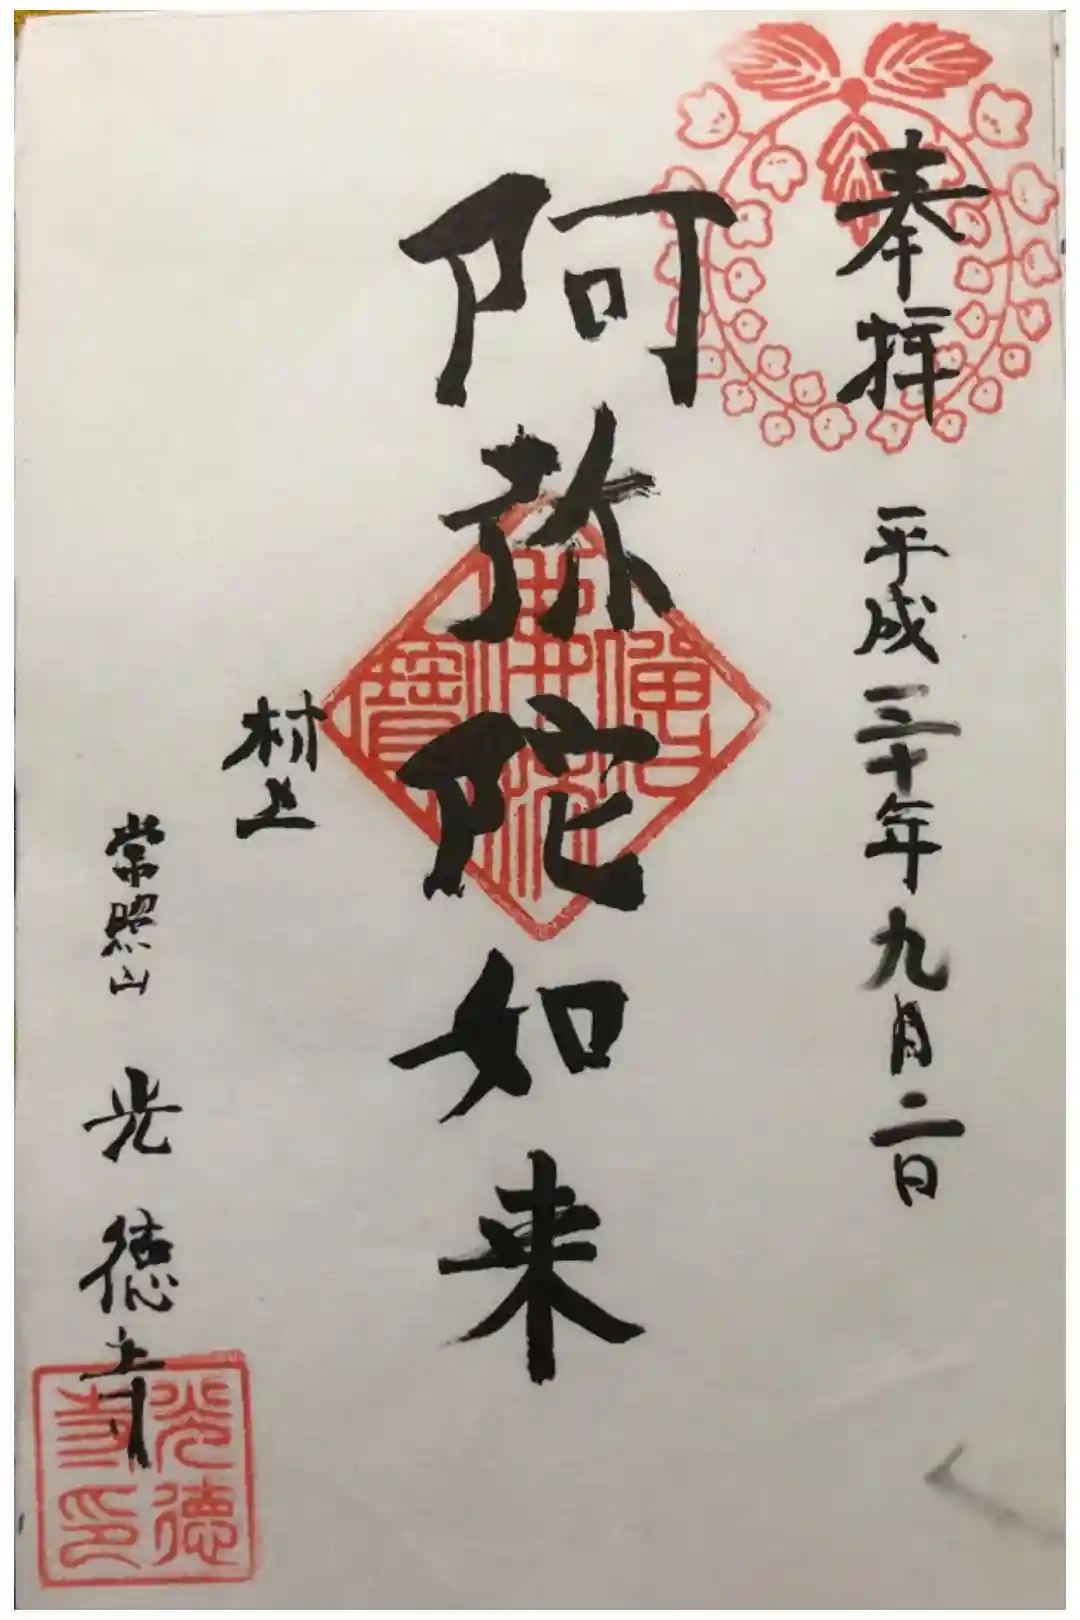 奉拝
平成三十年九月二日
阿弥陀如来
村上
常照山 光徳寺
佛法僧寶
光徳寺印